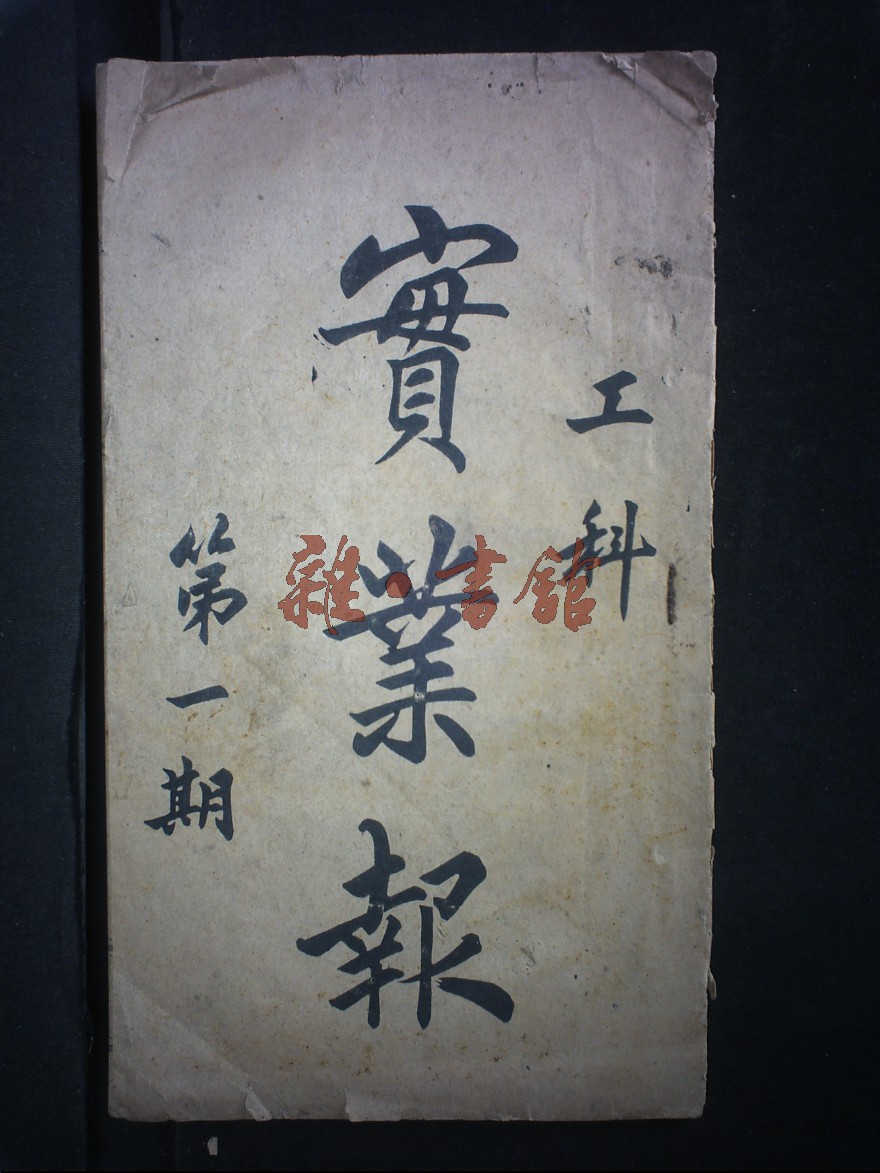 工科
實業報
第一期
雜·書舘